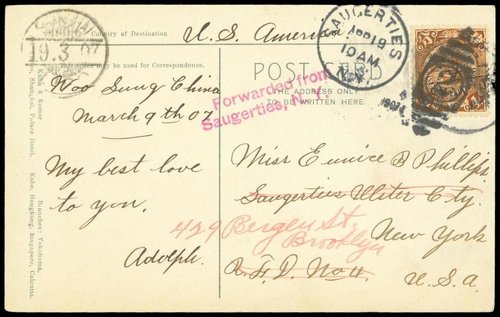 19.3 07
Country of Destination
U. S. America
SAUGERTIES
APR 19
10 AM
N.Y.
may be used for Correspondence.
POST CARD
THE ADDRESS ONLY
TO BE WRITTEN HERE
Forwarded from
Saugerties, N. Y.
1907
Woo Sung China
March 9th 07
My best love
to you.
Adolph.
Miss Eunice B Phillips
Saugerties Ulster Cty.
429 Bergen St,
Brooklyn
New York
R. F. D. No 4
U. S. A.
Branches: Yokohama,
Kobe, Hongkong, Singapore, Calcutta.